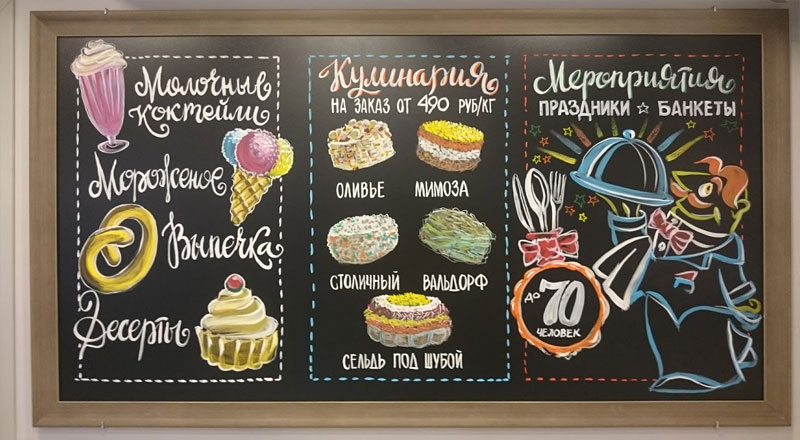 Молочные
коктейли
Мороженое
Выпечка
Десерты
Кулинария
НА ЗАКАЗ ОТ 490 РУБ/КГ
ОЛИВЬЕ
МИМОЗА
СТОЛИЧНЫЙ
ВАЛЬДОРФ
СЕЛЬДЬ ПОД ШУБОЙ
Мероприятия
ПРАЗДНИКИ ☆ БАНКЕТЫ
ДО
70
ЧЕЛОВЕК